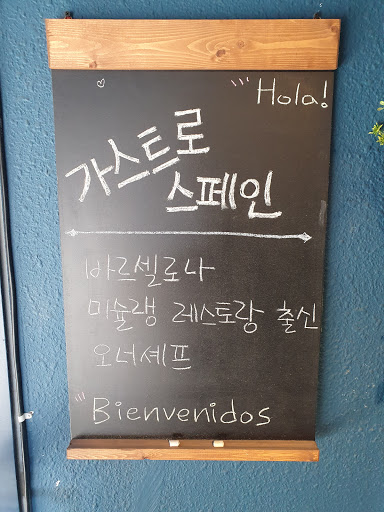 Hola!
가스트로
스페인
바르셀로나
미슐랭 레스토랑 출신
오너셰프
Bienvenidos